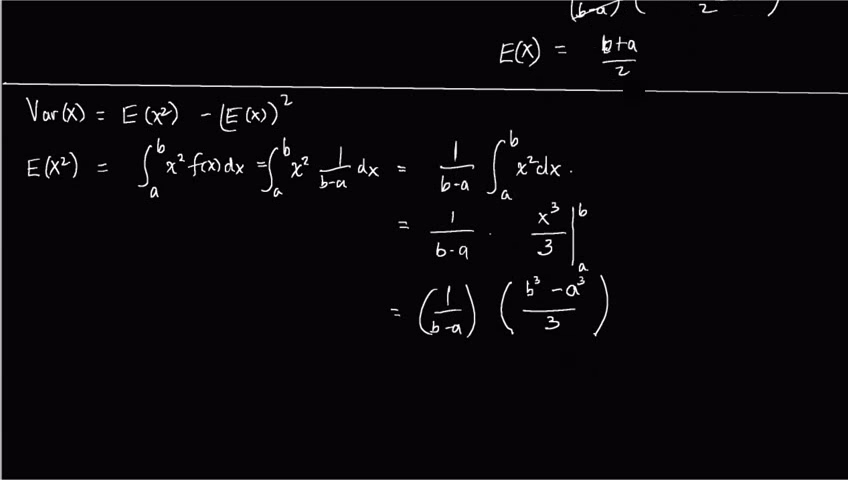 (b-a) ( 2 )
E(X) = b+a/2
Var(X) = E(X²) - (E(X))²
E(X²) = ∫ₐᵇ x² f(x) dx = ∫ₐᵇ x² 1/(b-a) dx = 1/(b-a) ∫ₐᵇ x² dx.
= 1/(b-a) · x³/3 |ₐᵇ
= (1/(b-a)) ((b³ - a³)/3)